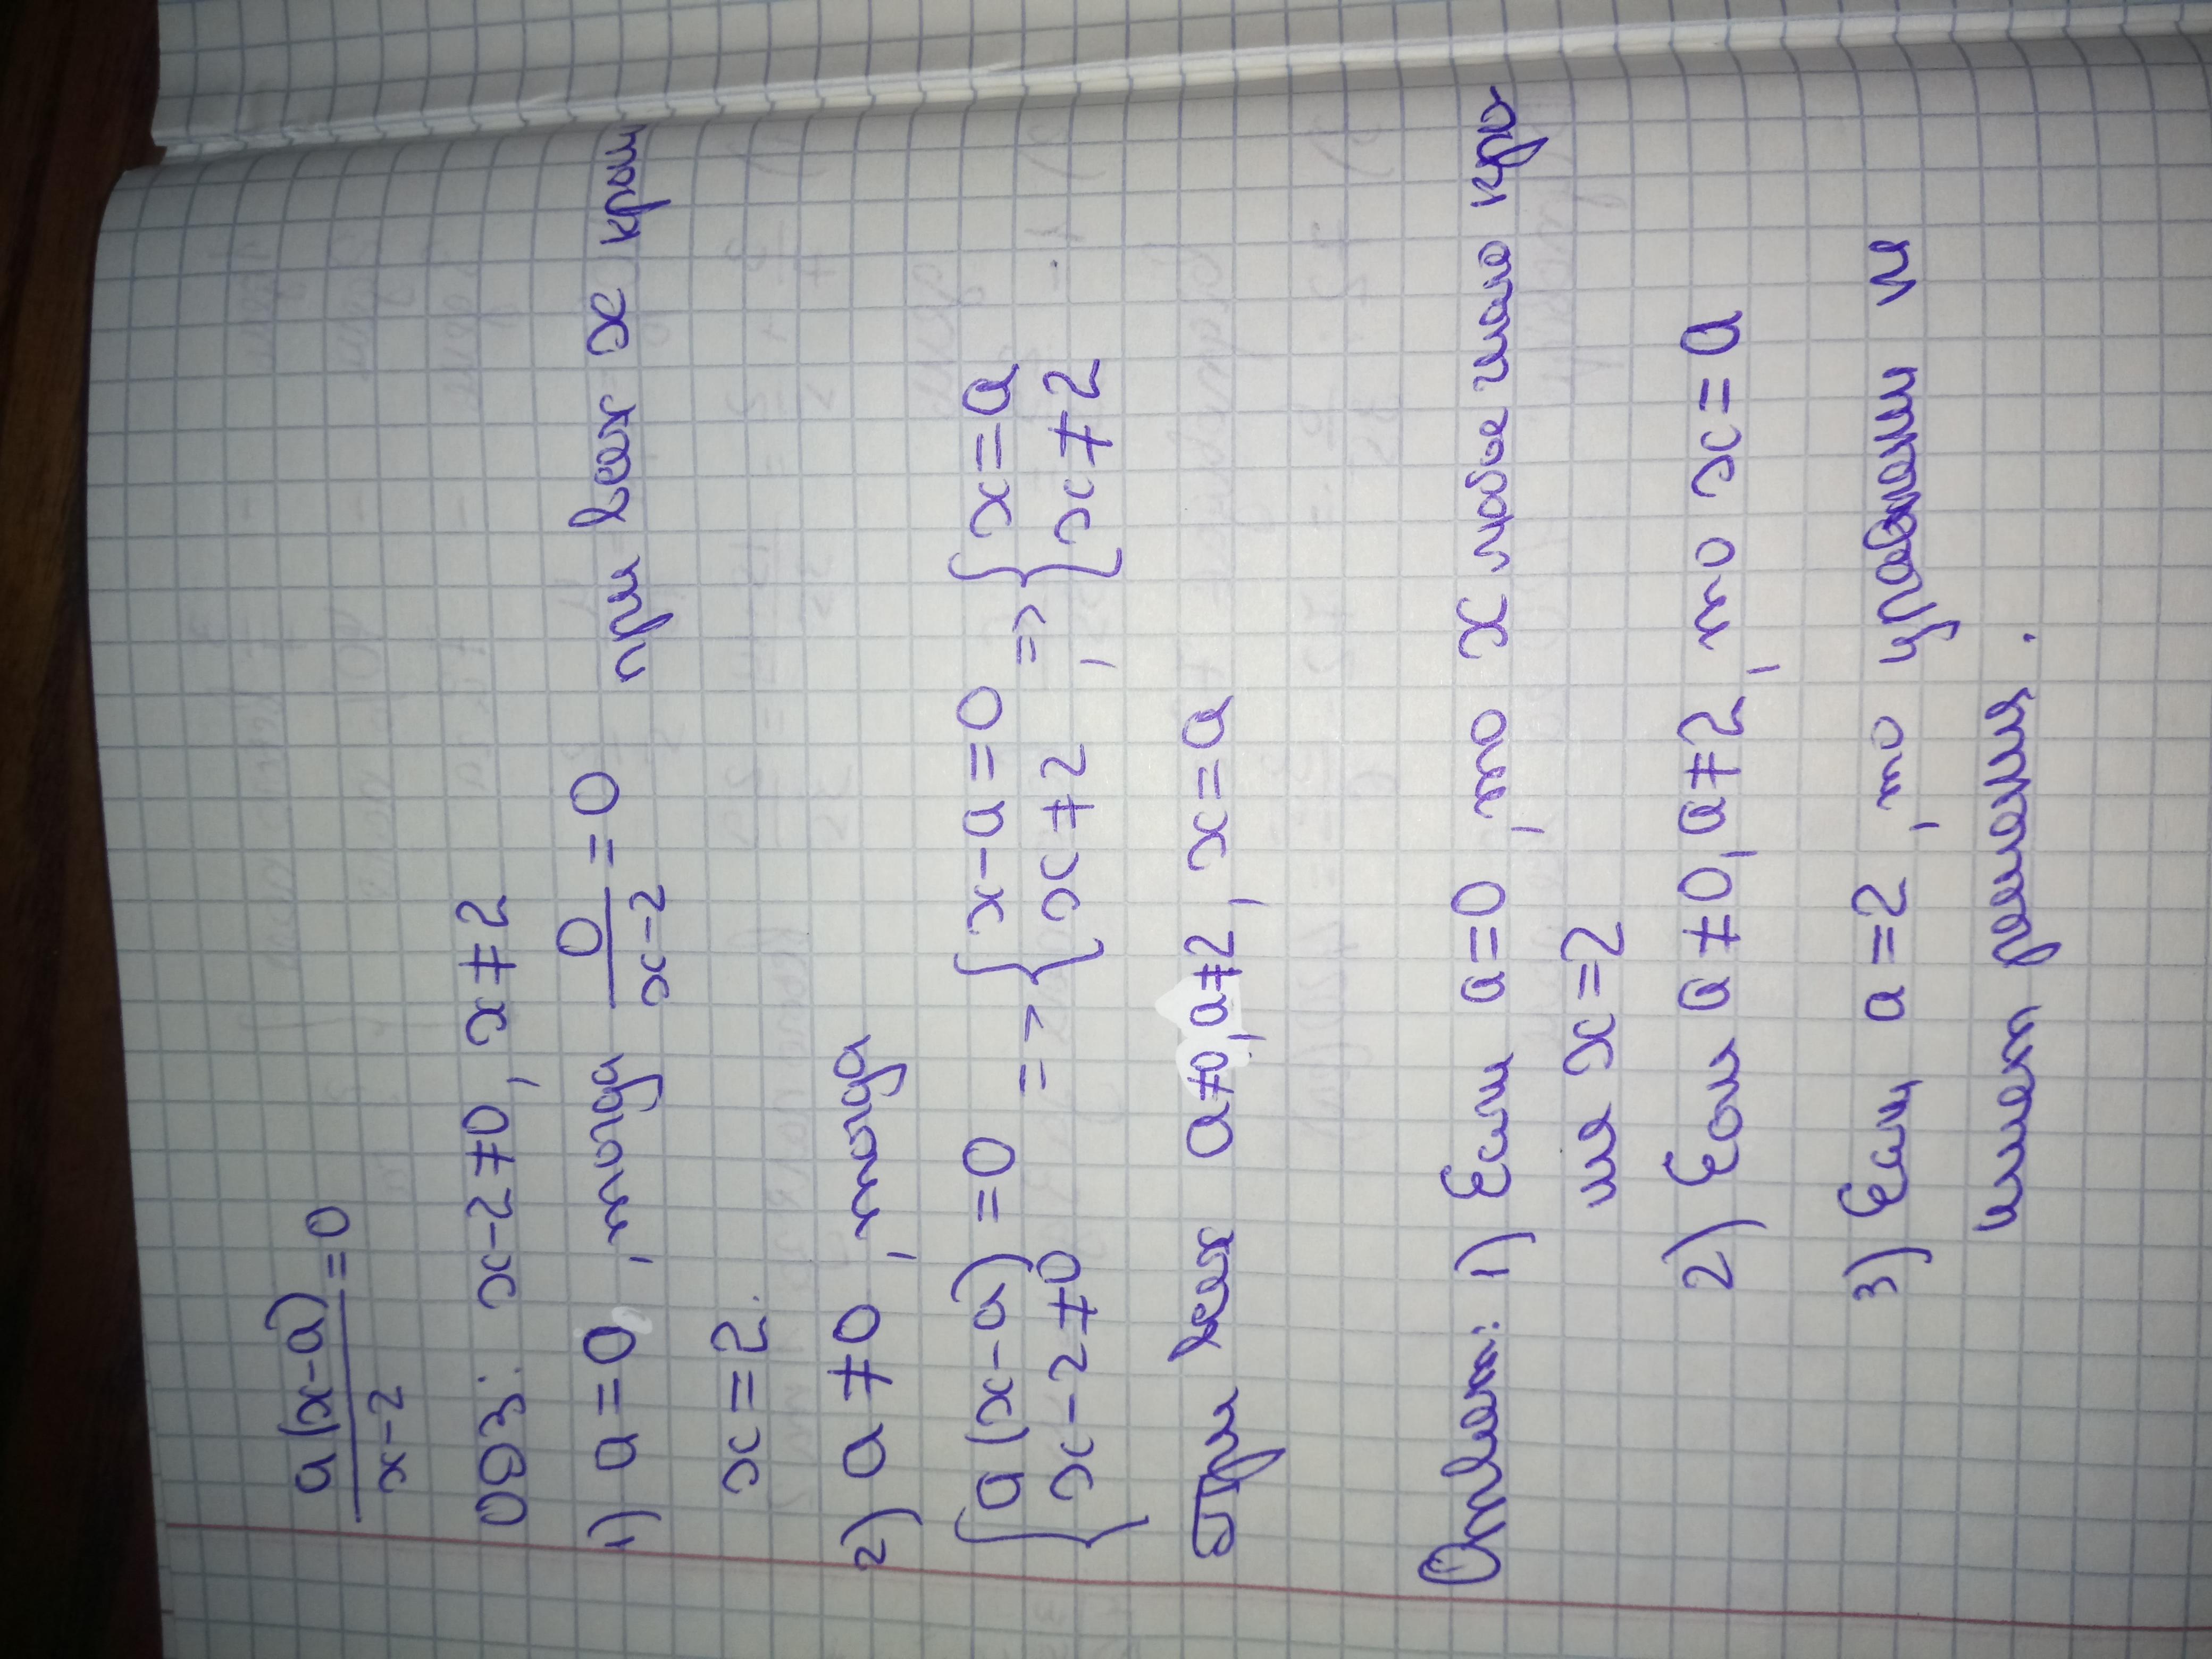 a(x-a)/x-2 = 0
ОДЗ: x-2≠0, x≠2
1) a=0, тогда 0/x-2 = 0 при всех x кроме
x=2.
2) a≠0, тогда
{a(x-a)=0 => {x-a=0 => {x=a
{x-2≠0 {x≠2, {x≠2
При всех a≠0, a≠2, x=a
Ответ: 1) Если a=0, то x любое число кро-
ме x=2
2) Если a≠0, a≠2, то x=a
3) Если a=2, то уравнение не
имеет решения.